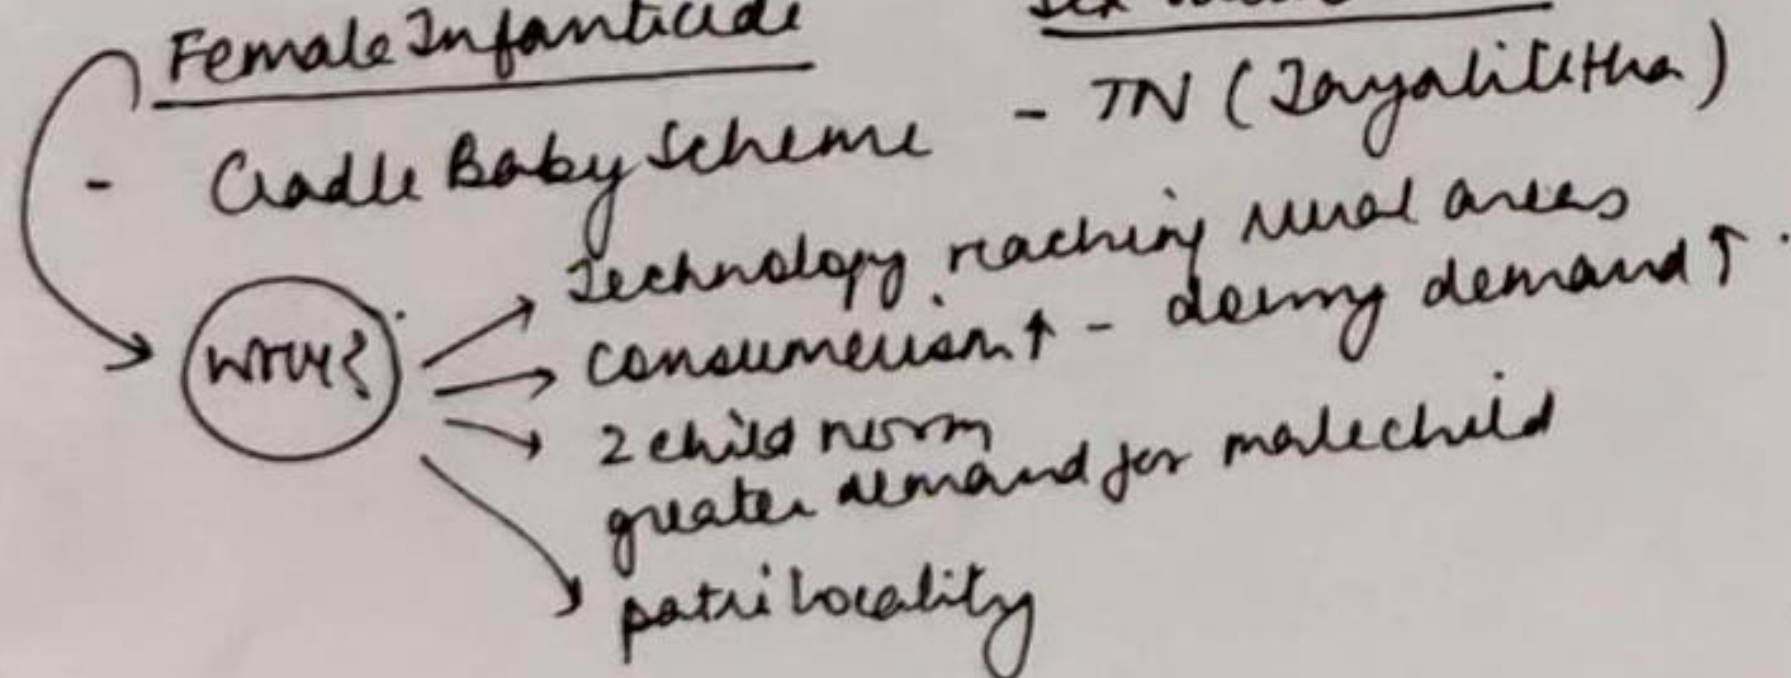 Female Infanticide
- Cradle Baby Scheme - TN (Jayalitetha)
WHY?
Technology reaching rural areas
consumerism ↑ - dowry demand ↑
2 child norm
greater demand for male child
patrilocality